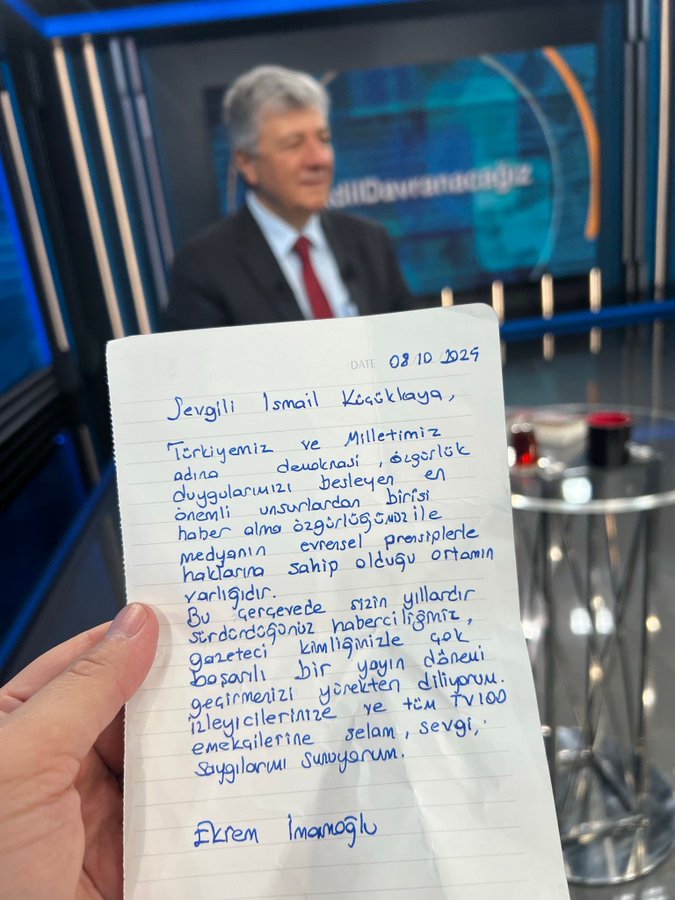 dilDavranacağız
DATE 08 10 2025
Sevgili İsmail Küçükkaya,
Türkiyemiz ve Milletimiz
adına demokrasi, özgürlük
duygularımızı besleyen en
önemli unsurlardan birisi
haber alma özgürlüğümüz ile
medyanın evrensel prensiplerle
haklarına sahip olduğu ortamın
varlığıdır.
Bu çerçevede sizin yıllardır
sürdürdüğünüz haberciliğiniz,
gazeteci kimliğinizle çok
başarılı bir yayın dönemi
geçirmenizi yürekten diliyorum.
İzleyicilerinize ve tüm TV100
emekçilerine selam, sevgi,
saygılarımı sunuyorum.
Ekrem İmamoğlu